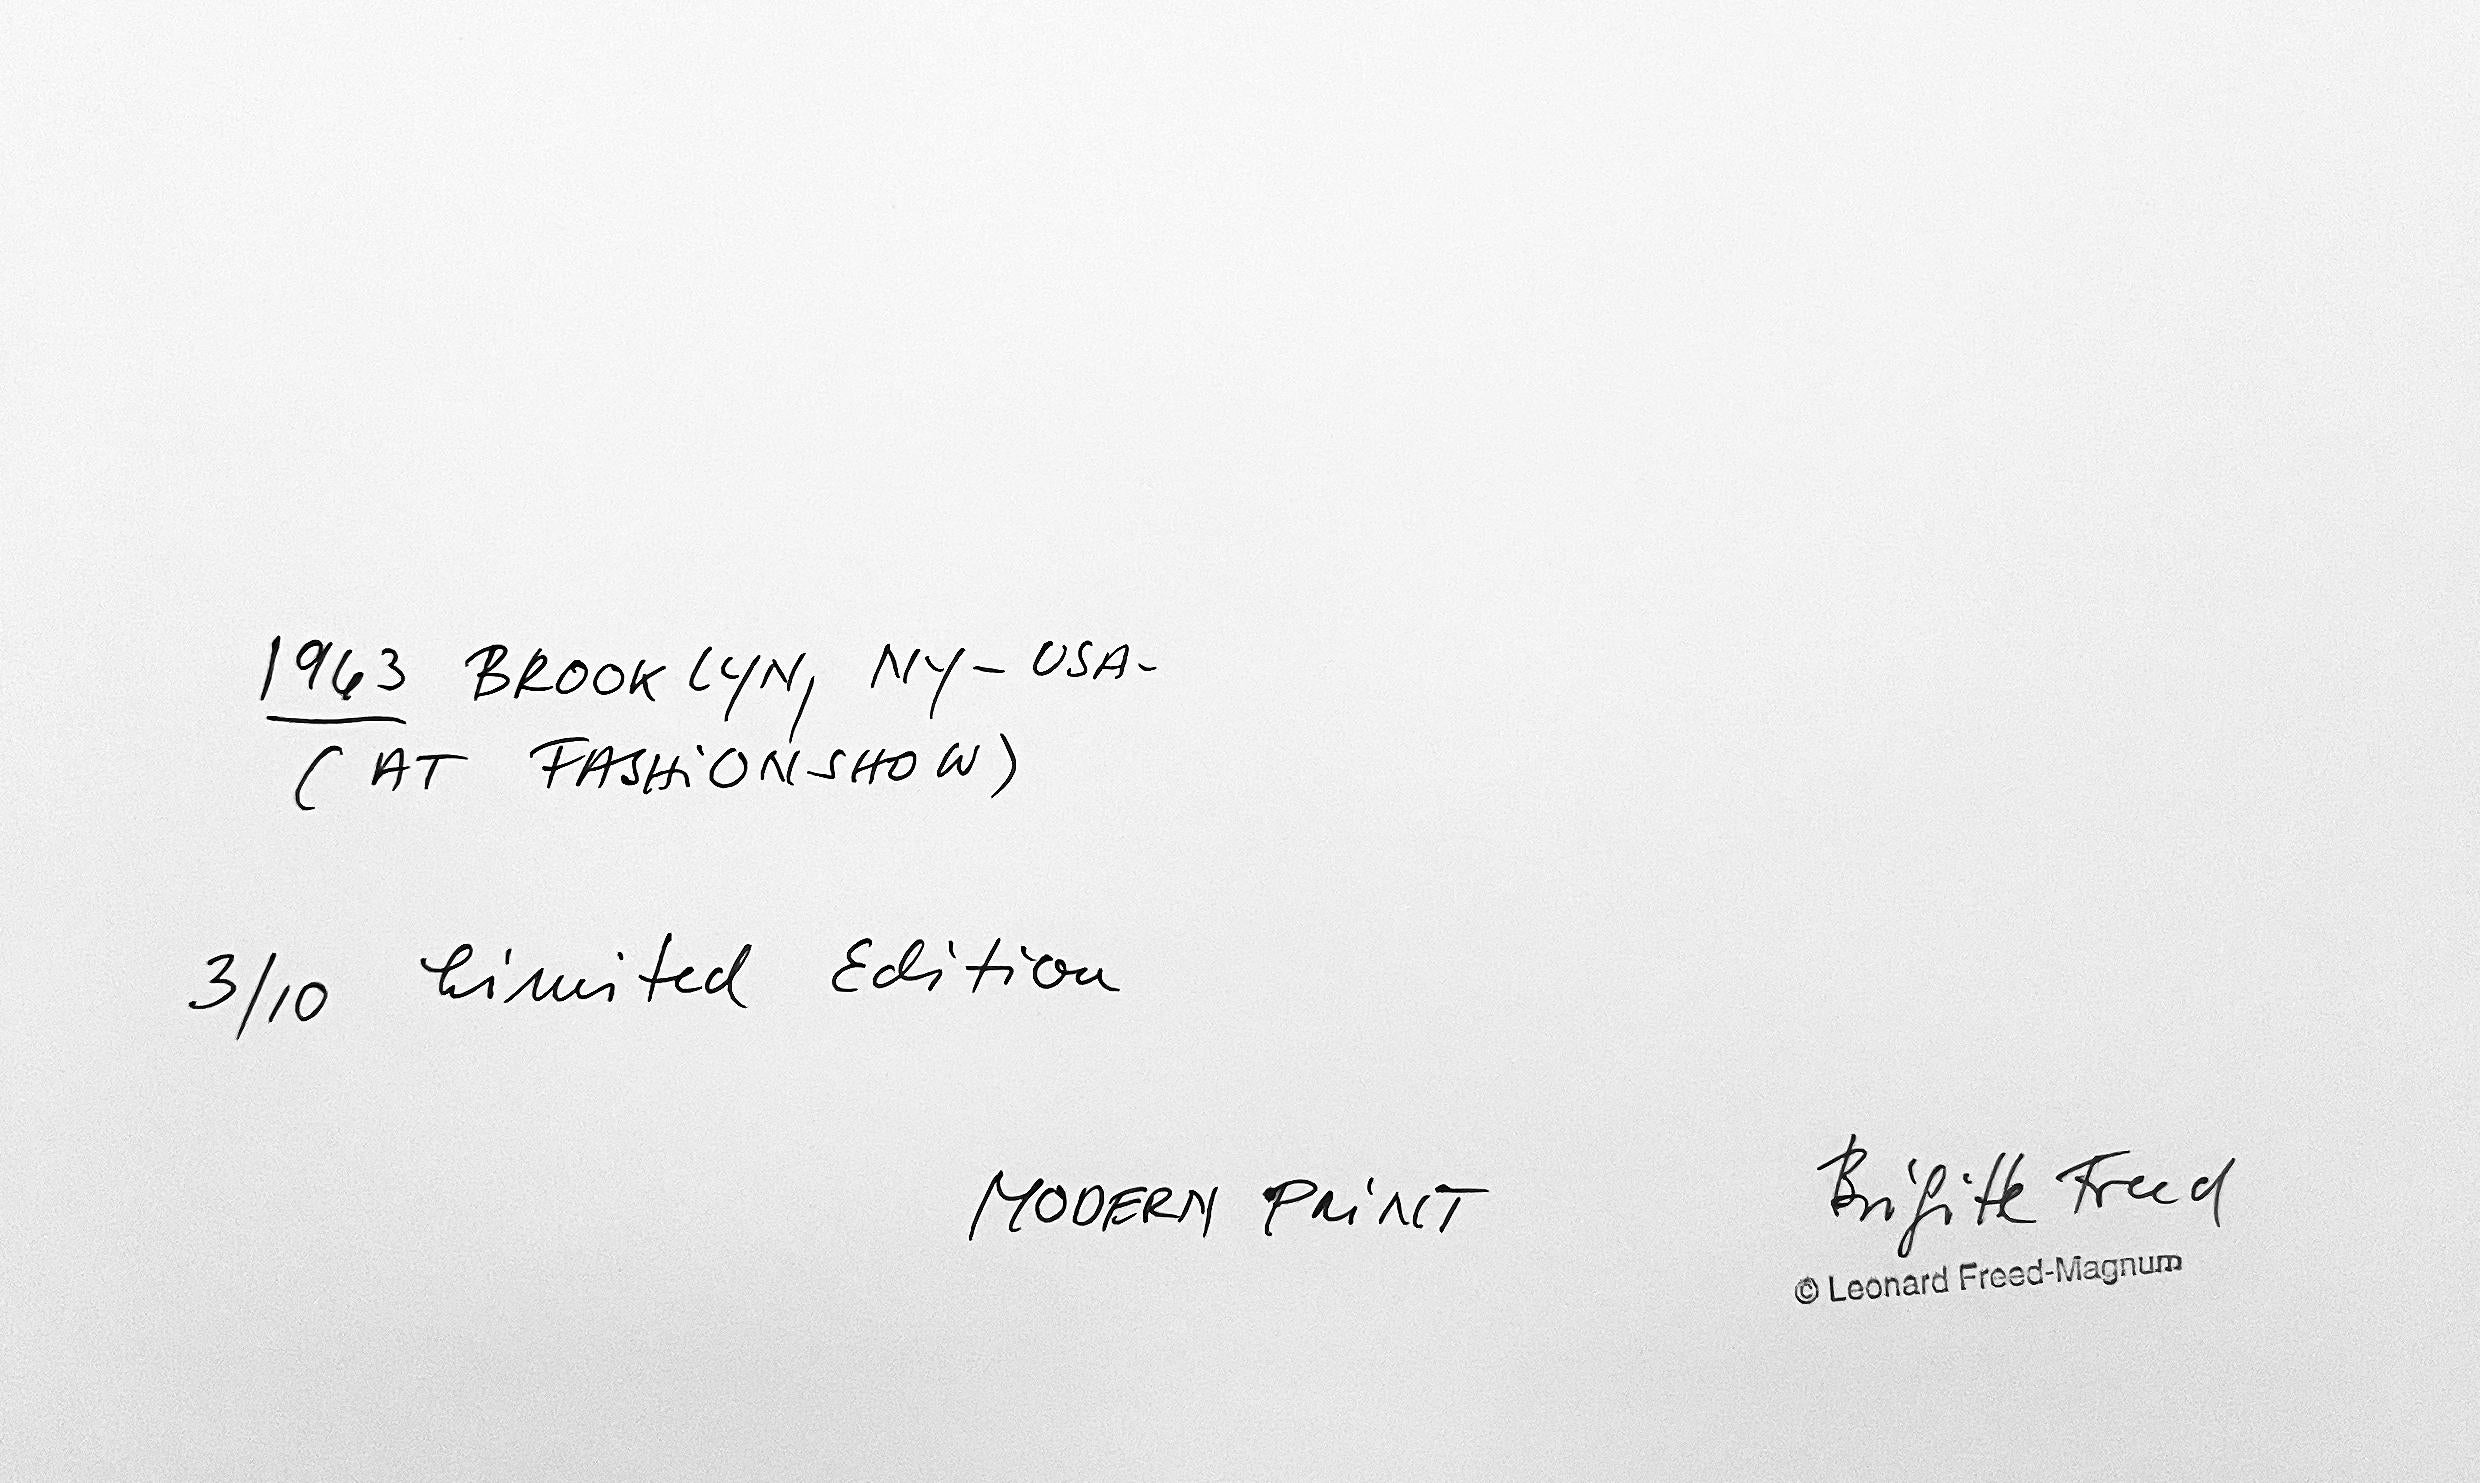 1963 BROOKLYN, NY - USA -
(AT FASHIONSHOW)
3/10 Limited Edition
MODERN PRINT
Brigitte Freed
© Leonard Freed-Magnum